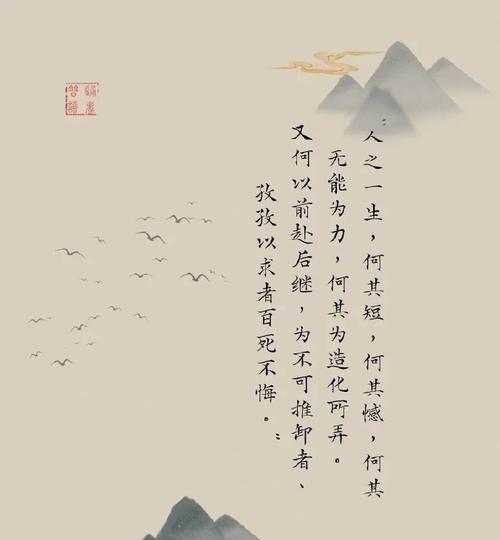 “人之一生，何其短，何其憾，何其
无能为力，何其为造化所弄。
又何以前赴后继，为不可推卸者、
孜孜以求者百死不悔。”